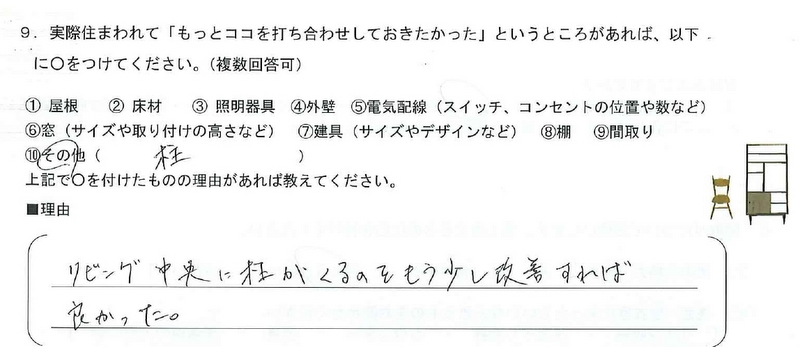 9．実際住まわれて「もっとココを打ち合わせしておきたかった」というところがあれば、以下
に〇をつけてください。（複数回答可）
① 屋根　② 床材　③ 照明器具　④外壁　⑤電気配線（スイッチ、コンセントの位置や数など）
⑥窓（サイズや取り付けの高さなど）　⑦建具（サイズやデザインなど）　⑧棚　⑨間取り
⑩その他（　柱　）
上記で〇を付けたものの理由があれば教えてください。
■理由
リビング中央に柱がくるのをもう少し改善すれば
良かった。